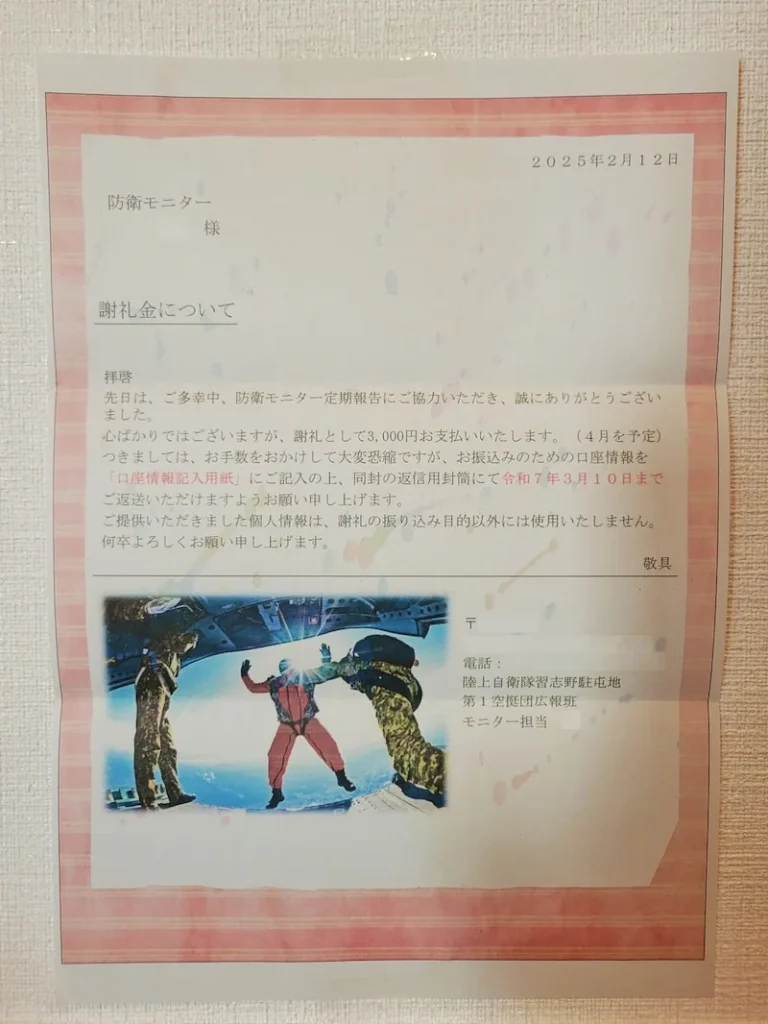 ２０２５年２月１２日
防衛モニター
様
謝礼金について
拝啓
先日は、ご多幸中、防衛モニター定期報告にご協力いただき、誠にありがとうござい
ました。
心ばかりではございますが、謝礼として3,000円お支払いいたします。（４月を予定）
つきましては、お手数をおかけして大変恐縮ですが、お振込みのための口座情報を
「口座情報記入用紙」にご記入の上、同封の返信用封筒にて令和７年３月１０日まで
ご返送いただけますようお願い申し上げます。
ご提供いただきました個人情報は、謝礼の振り込み目的以外には使用いたしません。
何卒よろしくお願い申し上げます。
敬具
〒
電話：
陸上自衛隊習志野駐屯地
第１空挺団広報班
モニター担当